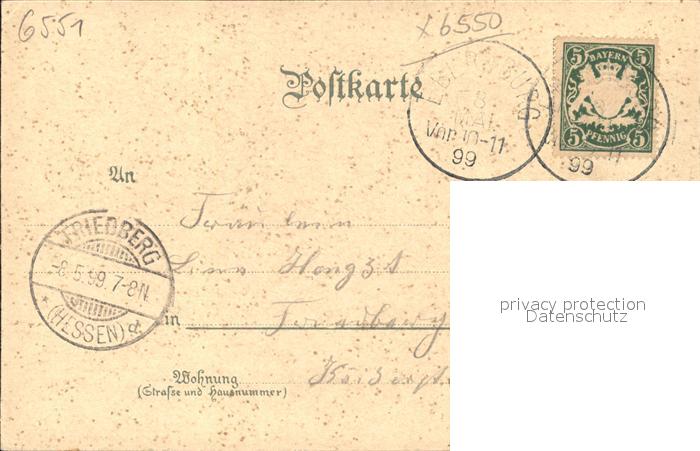 6551
x6550
BAYERN
5 5
5 5
PFENNIG
Postkarte
8
MAI
Vor. 10-11
99
99
An
Fräulein
Lina
FRIEDBERG
-8.5.99. 7-8N.
* (HESSEN) *
in Friedberg
Wohnung
(Straße und Hausnummer)
privacy protection
Datenschutz